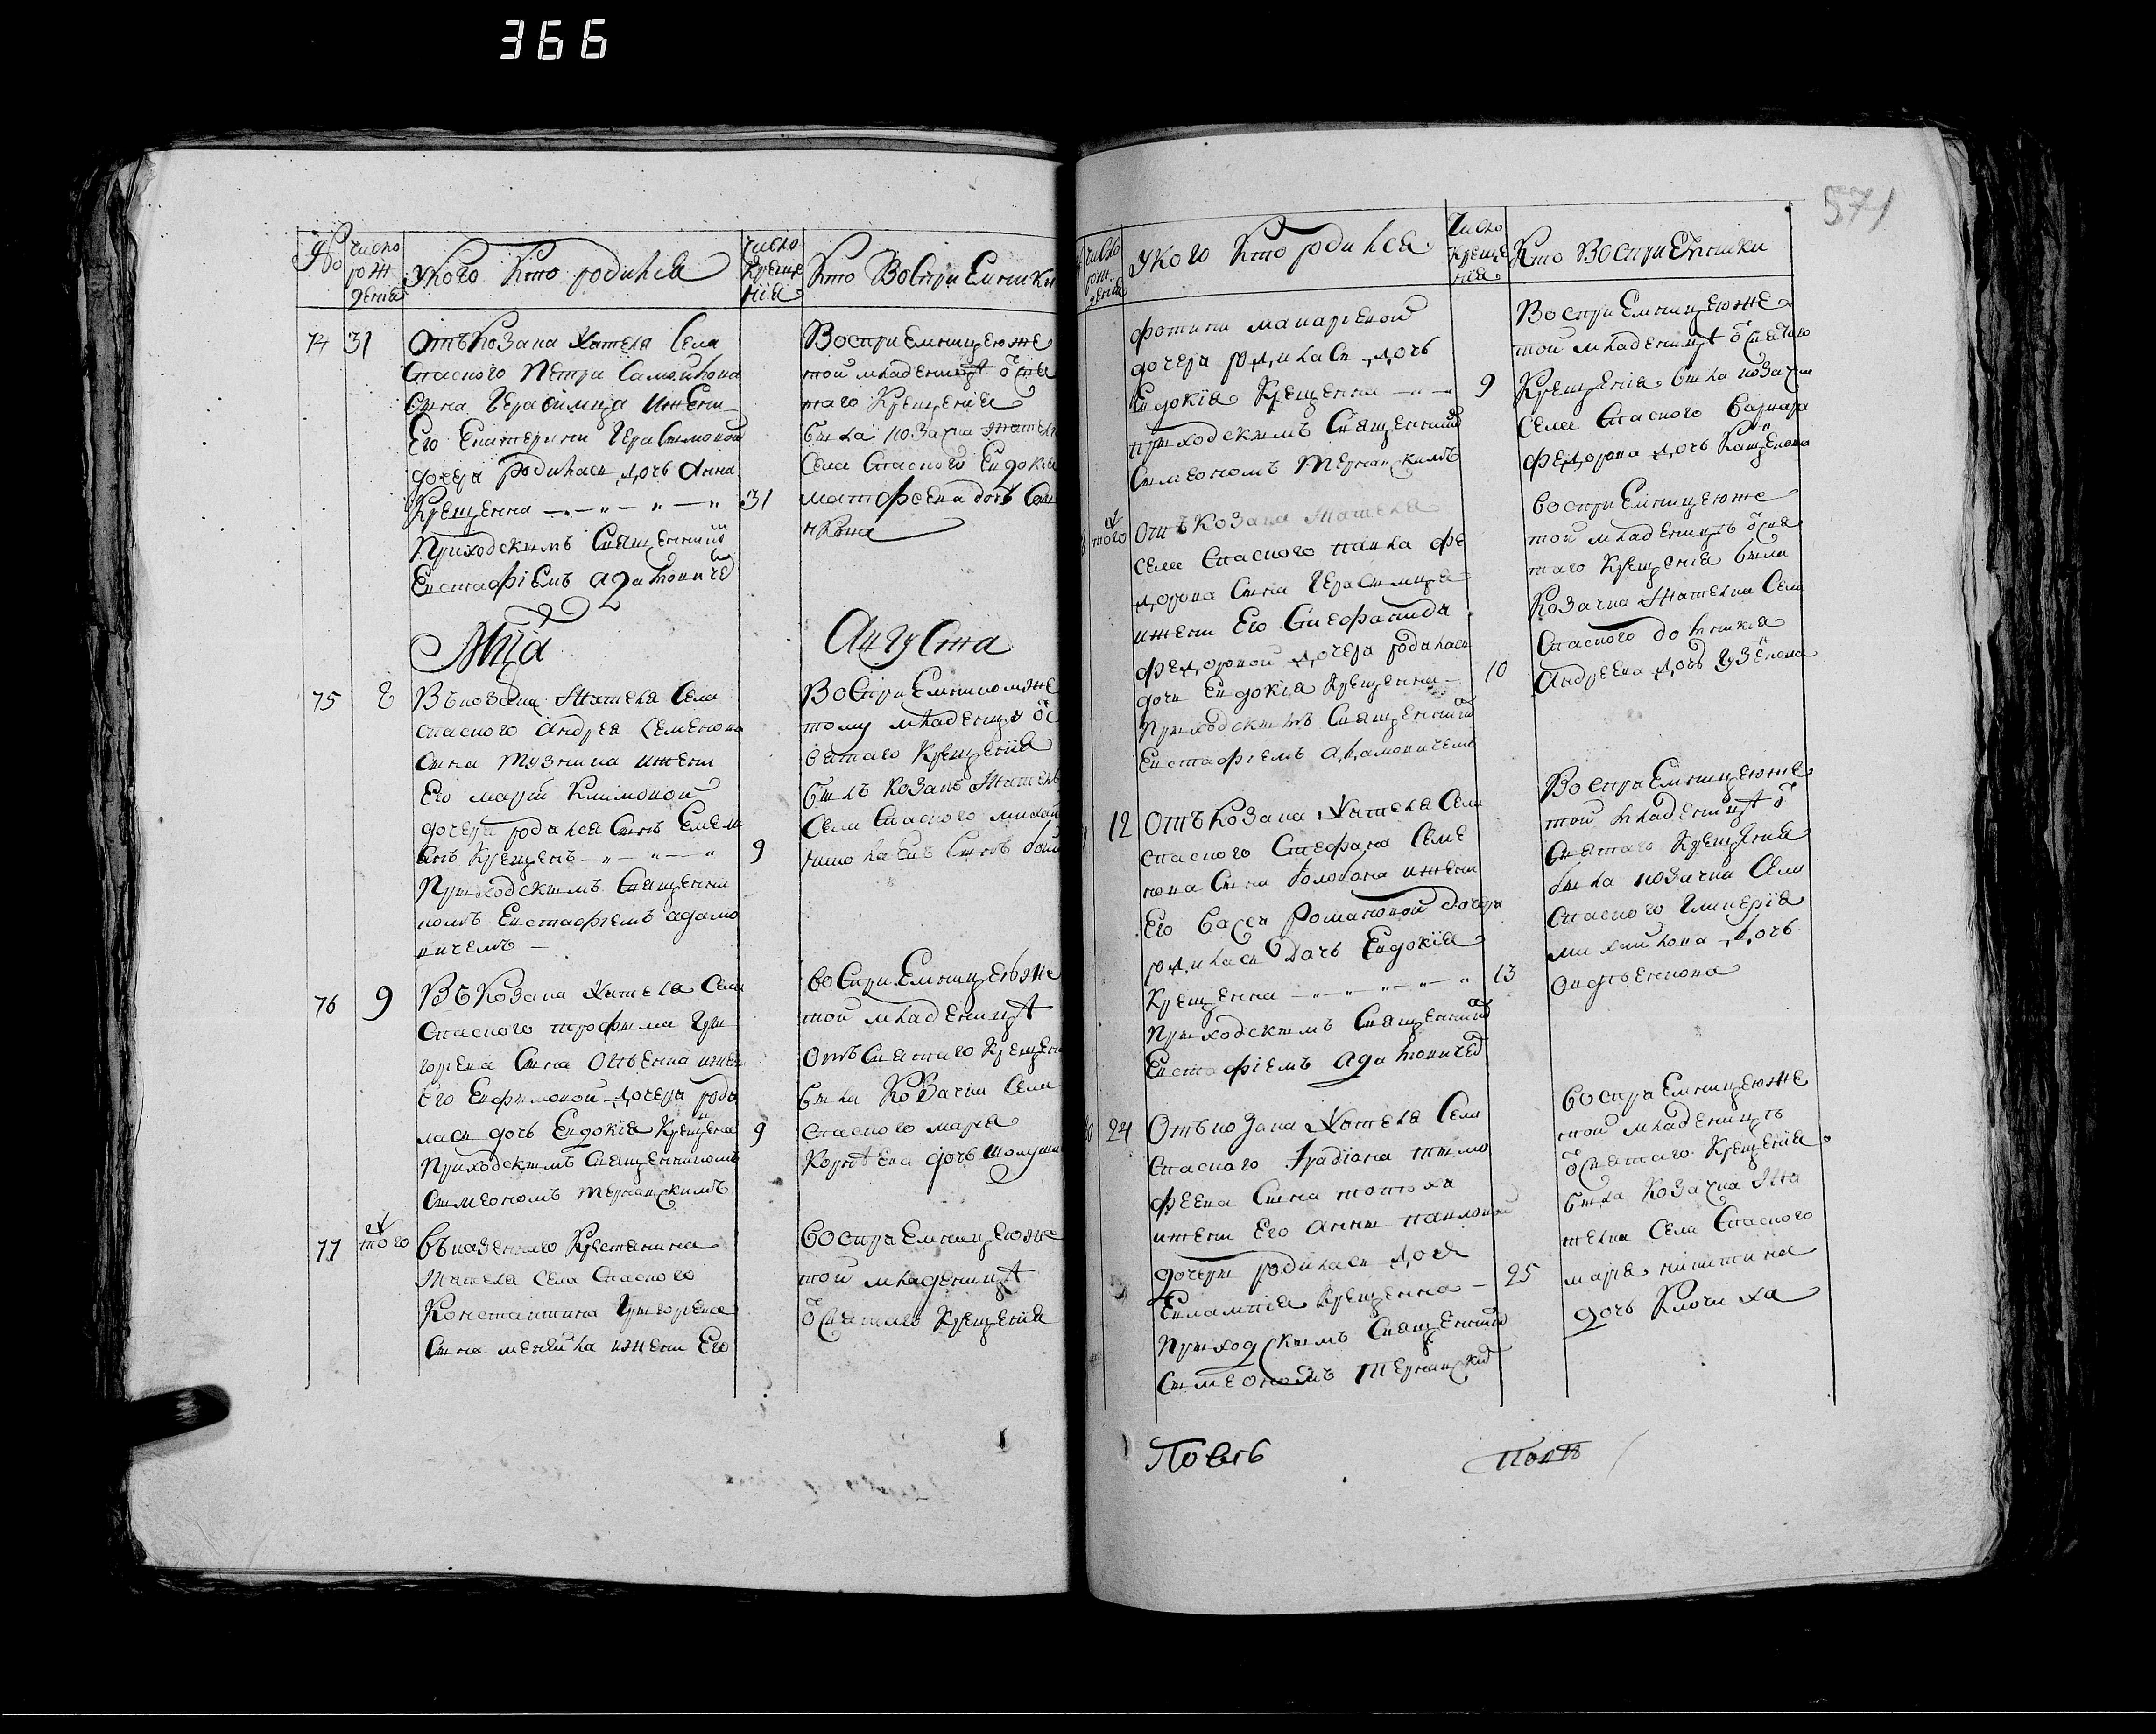 366
571
№
число рождения
У кого кто родился
число крещения
Кто Восприемники
74 31
Отъ козака Жителя Села
Спаского Петра Самойлова
Сына Герасимца и жени
Его Екатерини Герасимовой
дочери родилась дочь Анна
Крещенна 31
Приходскимъ Священник
Евстафіемъ Адамович
Восприемницею же
той младеницѣ ѿ Свя
таго Крещенія
била козачка жителк
Села Спаского Евдокія
матфеева дочь
Мца
Августа
75 8
Въ козака Жителя Села
спаского Андрея Семенова
Сина Тузника и жени
Его маріи Климовой
дочери родился Синъ Емели
анъ Крещенъ 9
Приходскимъ Священни
комъ Евстафіемъ Адамо
вичемъ
Восприемникомъ же
тому младенцу ѿ С
вятаго Крещенія
билъ козакъ Житель
Села Спаского михай
Синъ
76 9
Въ Козака Жителя Села
Спаского трофима Гри
горіева Сина жени
Его Ефимовой дочери роди
лась дочь Евдокія Крещена 9
Приходскимъ Священникомъ
Симеономъ Тернавскимъ
Восприемницею же
той младеницѣ
Отъ Святаго Крещен
била Козачка Села
Спаского марія
Корнѣева дочь
77 того
Въ казенного Крестянина
Жителя села Спаского
Константина Григоріева
Сина и жени Его
Восприемницею же
той младеницѣ
ѿ Святаго Крещенія
число рождения
У кого кто родился
Число Крещенія
Кто Восприемники
фотини макаріевой
дочери родилась дочь
Евдокія Крещенна 9
приходскимъ Священник
Симеономъ Тернавскимъ
Восприемницею же
той младеницѣ ѿ Святаго
Крещенія била козачка
Села Спаского Варвара
федорова дочь
того
Отъ Козака Жителя
села Спаского павла фе
дорова Сина Герасимця
и жени Его Стефанида
федоровой дочери родилась
дочь Евдокія Крещенна 10
Приходскимъ Священник
Евстафіемъ Адамовичемъ
Восприемницею же
той младеницѣ ѿ Свя
таго Крещенія била
Козачка Жителка Села
Спаского
Андреева дочь
12
Отъ Козака Жителя Села
спаского Стефана Семе
нова Сина Голобока и жени
Его Васси Романовой дочери
родилась дочь Евдокія
Крещенна 13
Приходскимъ Священник
Евстафіемъ Адамовичем
Восприемницею же
той младеницѣ ѿ
Святаго Крещенія
била козачка Села
Спаского Гликерія
михайлова дочь
24
Отъ козака Жителя Села
Спаского Ірадіона тимо
феева Сина
и жени Его Анни павловой
дочери родилась дочь
Евлампія Крещенна 25
Приходскимъ Священник
Симеономъ Тернавским
Восприемницею же
той младеницѣ
ѿ Святаго Крещенія
била Козачка Жи
телка Села Спаского
марія никитина
дочь